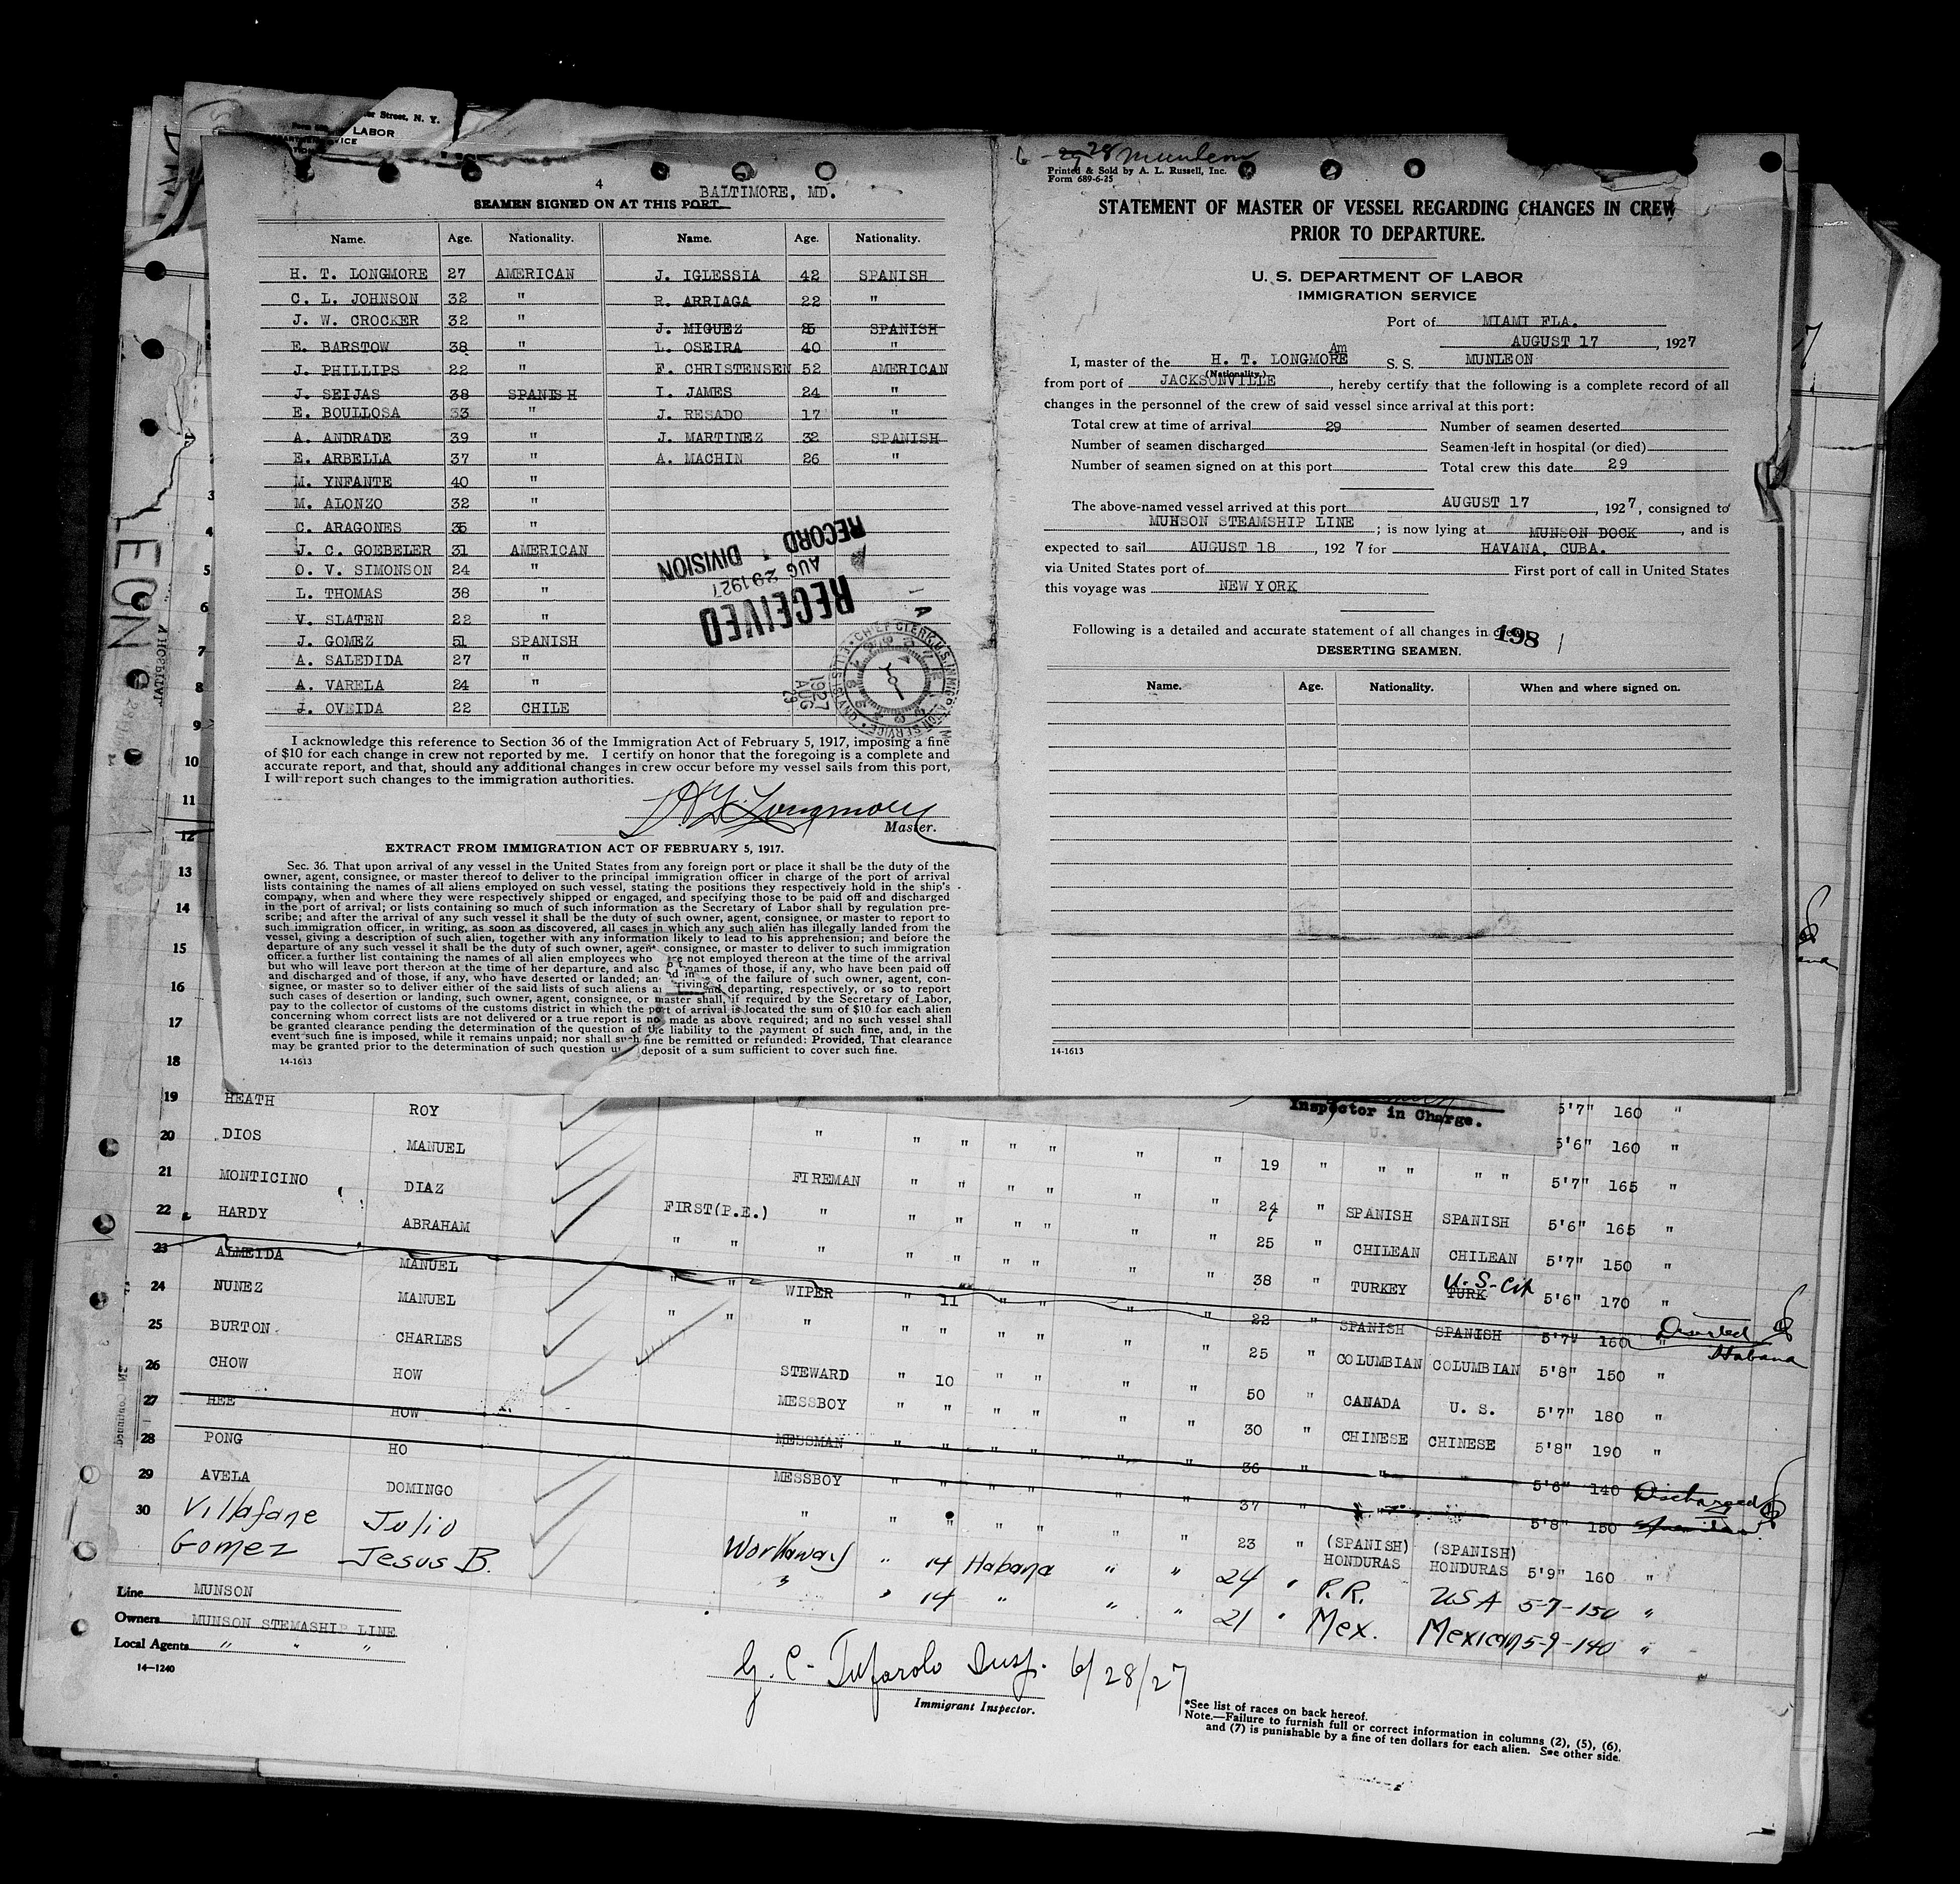 er Street, N. Y.
LABOR
4
BALTIMORE, MD.
SEAMEN SIGNED ON AT THIS PORT
Name. Age. Nationality. Name. Age. Nationality.
H. T. LONGMORE 27 AMERICAN J. IGLESSIA 42 SPANISH
C. L. JOHNSON 32 " R. ARRIAGA 22 "
J. W. CROCKER 32 " J. MIGUEZ 25 SPANISH
E. BARSTOW 38 " L. OSEIRA 40 "
J. PHILLIPS 22 " F. CHRISTENSEN 52 AMERICAN
J. SEIJAS 38 SPANISH I. JAMES 24 "
E. BOULLOSA 33 " J. RESADO 17 "
A. ANDRADE 39 " J. MARTINEZ 32 SPANISH
E. ARBELLA 37 " A. MACHIN 26 "
M. YNFANTE 40 "
M. ALONZO 32 "
C. ARAGONES 35 "
J. C. GOEBELER 31 AMERICAN
O. V. SIMONSON 24 "
L. THOMAS 38 "
V. SLATEN 22 "
J. GOMEZ 51 SPANISH
A. SALEDIDA 27 "
A. VARELA 24 "
J. OVEIDA 22 CHILE
RECEIVED
AUG 29 1927
RECORD DIVISION
CHIEF CLERK, U.S. IMMIGRATION SERVICE
1927 AUG 29
I acknowledge this reference to Section 36 of the Immigration Act of February 5, 1917, imposing a fine
of $10 for each change in crew not reported by me. I certify on honor that the foregoing is a complete and
accurate report, and that, should any additional changes in crew occur before my vessel sails from this port,
I will report such changes to the immigration authorities.
H. T. Longmore
Master.
EXTRACT FROM IMMIGRATION ACT OF FEBRUARY 5, 1917.
Sec. 36. That upon arrival of any vessel in the United States from any foreign port or place it shall be the duty of the
owner, agent, consignee, or master thereof to deliver to the principal immigration officer in charge of the port of arrival
lists containing the names of all aliens employed on such vessel, stating the positions they respectively hold in the ship's
company, when and where they were respectively shipped or engaged, and specifying those to be paid off and discharged
in the port of arrival; or lists containing so much of such information as the Secretary of Labor shall by regulation pre-
scribe; and after the arrival of any such vessel it shall be the duty of such owner, agent, consignee, or master to report to
such immigration officer, in writing, as soon as discovered, all cases in which any such alien has illegally landed from the
vessel, giving a description of such alien, together with any information likely to lead to his apprehension; and before the
departure of any such vessel it shall be the duty of such owner, agent, consignee, or master to deliver to such immigration
officer a further list containing the names of all alien employees who re not employed thereon at the time of the arrival
but who will leave port thereon at the time of her departure, and also names of those, if any, who have been paid off
and discharged and of those, if any, who have deserted or landed; an of the failure of such owner, agent, con-
signee, or master so to deliver either of the said lists of such aliens a nd departing, respectively, or so to report
such cases of desertion or landing, such owner, agent, consignee, or master shall, if required by the Secretary of Labor,
pay to the collector of customs of the customs district in which the port of arrival is located the sum of $10 for each alien
concerning whom correct lists are not delivered or a true report is not made as above required; and no such vessel shall
be granted clearance pending the determination of the question of the liability to the payment of such fine, and, in the
event such fine is imposed, while it remains unpaid; nor shall such fine be remitted or refunded: Provided, That clearance
may be granted prior to the determination of such question u deposit of a sum sufficient to cover such fine.
14-1613
6 - 29 28 Munleon
Printed & Sold by A. L. Russell, Inc.
Form 689-6-25
STATEMENT OF MASTER OF VESSEL REGARDING CHANGES IN CREW
PRIOR TO DEPARTURE.
U. S. DEPARTMENT OF LABOR
IMMIGRATION SERVICE
Port of MIAMI FLA.
AUGUST 17, 1927
Am
I, master of the H. T. LONGMORE S. S. MUNLEON
(Nationality.)
from port of JACKSONVILLE, hereby certify that the following is a complete record of all
changes in the personnel of the crew of said vessel since arrival at this port:
Total crew at time of arrival 29 Number of seamen deserted
Number of seamen discharged Seamen left in hospital (or died)
Number of seamen signed on at this port Total crew this date 29
The above-named vessel arrived at this port AUGUST 17, 1927, consigned to
MUNSON STEAMSHIP LINE; is now lying at MUNSON DOCK, and is
expected to sail AUGUST 18, 1927 for HAVANA, CUBA.
via United States port of First port of call in United States
this voyage was NEW YORK
Following is a detailed and accurate statement of all changes in crew
198
DESERTING SEAMEN.
Name. Age. Nationality. When and where signed on.
14-1613
LEON
3
4
5
6
7
8
9
10
11
12
13
14
15
16
17
18
Inspector in Charge.
19 HEATH ROY 5'7" 160 "
20 DIOS MANUEL " " " " " " " 19 " " " " " 5'6" 160 "
21 MONTICINO DIAZ FIREMAN " " " " " " 24 " SPANISH SPANISH 5'7" 165 "
22 HARDY ABRAHAM FIRST(P.E.) " " " " " " " 25 " CHILEAN CHILEAN 5'6" 165 "
23 ALMEIDA MANUEL " " " " " " " " " 38 " TURKEY TURK U.S. Cit 5'7" 150 "
24 NUNEZ MANUEL " " WIPER " 11 " " " " 22 " SPANISH SPANISH 5'6" 170 "
25 BURTON CHARLES " " " " " " " " " 25 " COLUMBIAN COLUMBIAN 5'7" 160 " Deserted Habana
26 CHOW HOW STEWARD " 10 " " " " 50 " CANADA U. S. 5'8" 150 "
27 HEE HOW MESSBOY " " " " " " 30 " CHINESE CHINESE 5'7" 180 "
28 PONG HO MESSMAN " " " " " " 36 " " " 5'8" 190 "
29 AVELA DOMINGO MESSBOY " " " " " " 37 " 5'6" 140 Discharged
30 " " " " " " 23 " (SPANISH) HONDURAS (SPANISH) HONDURAS 5'8" 150
5'9" 160 "
Villafane Julio Workaway " 14 Habana " " 24 " P.R. USA 5-7-150 "
Gomez Jesus B. " " 14 " " " 21 " Mex. Mexican 5-9-140 "
Line MUNSON
Owners MUNSON STEMASHIP LINE
Local Agents " " "
14—1240
G. C. Tufarolo Insp. 6/28/27
Immigrant Inspector.
*See list of races on back hereof.
Note.—Failure to furnish full or correct information in columns (2), (5), (6),
and (7) is punishable by a fine of ten dollars for each alien. See other side.